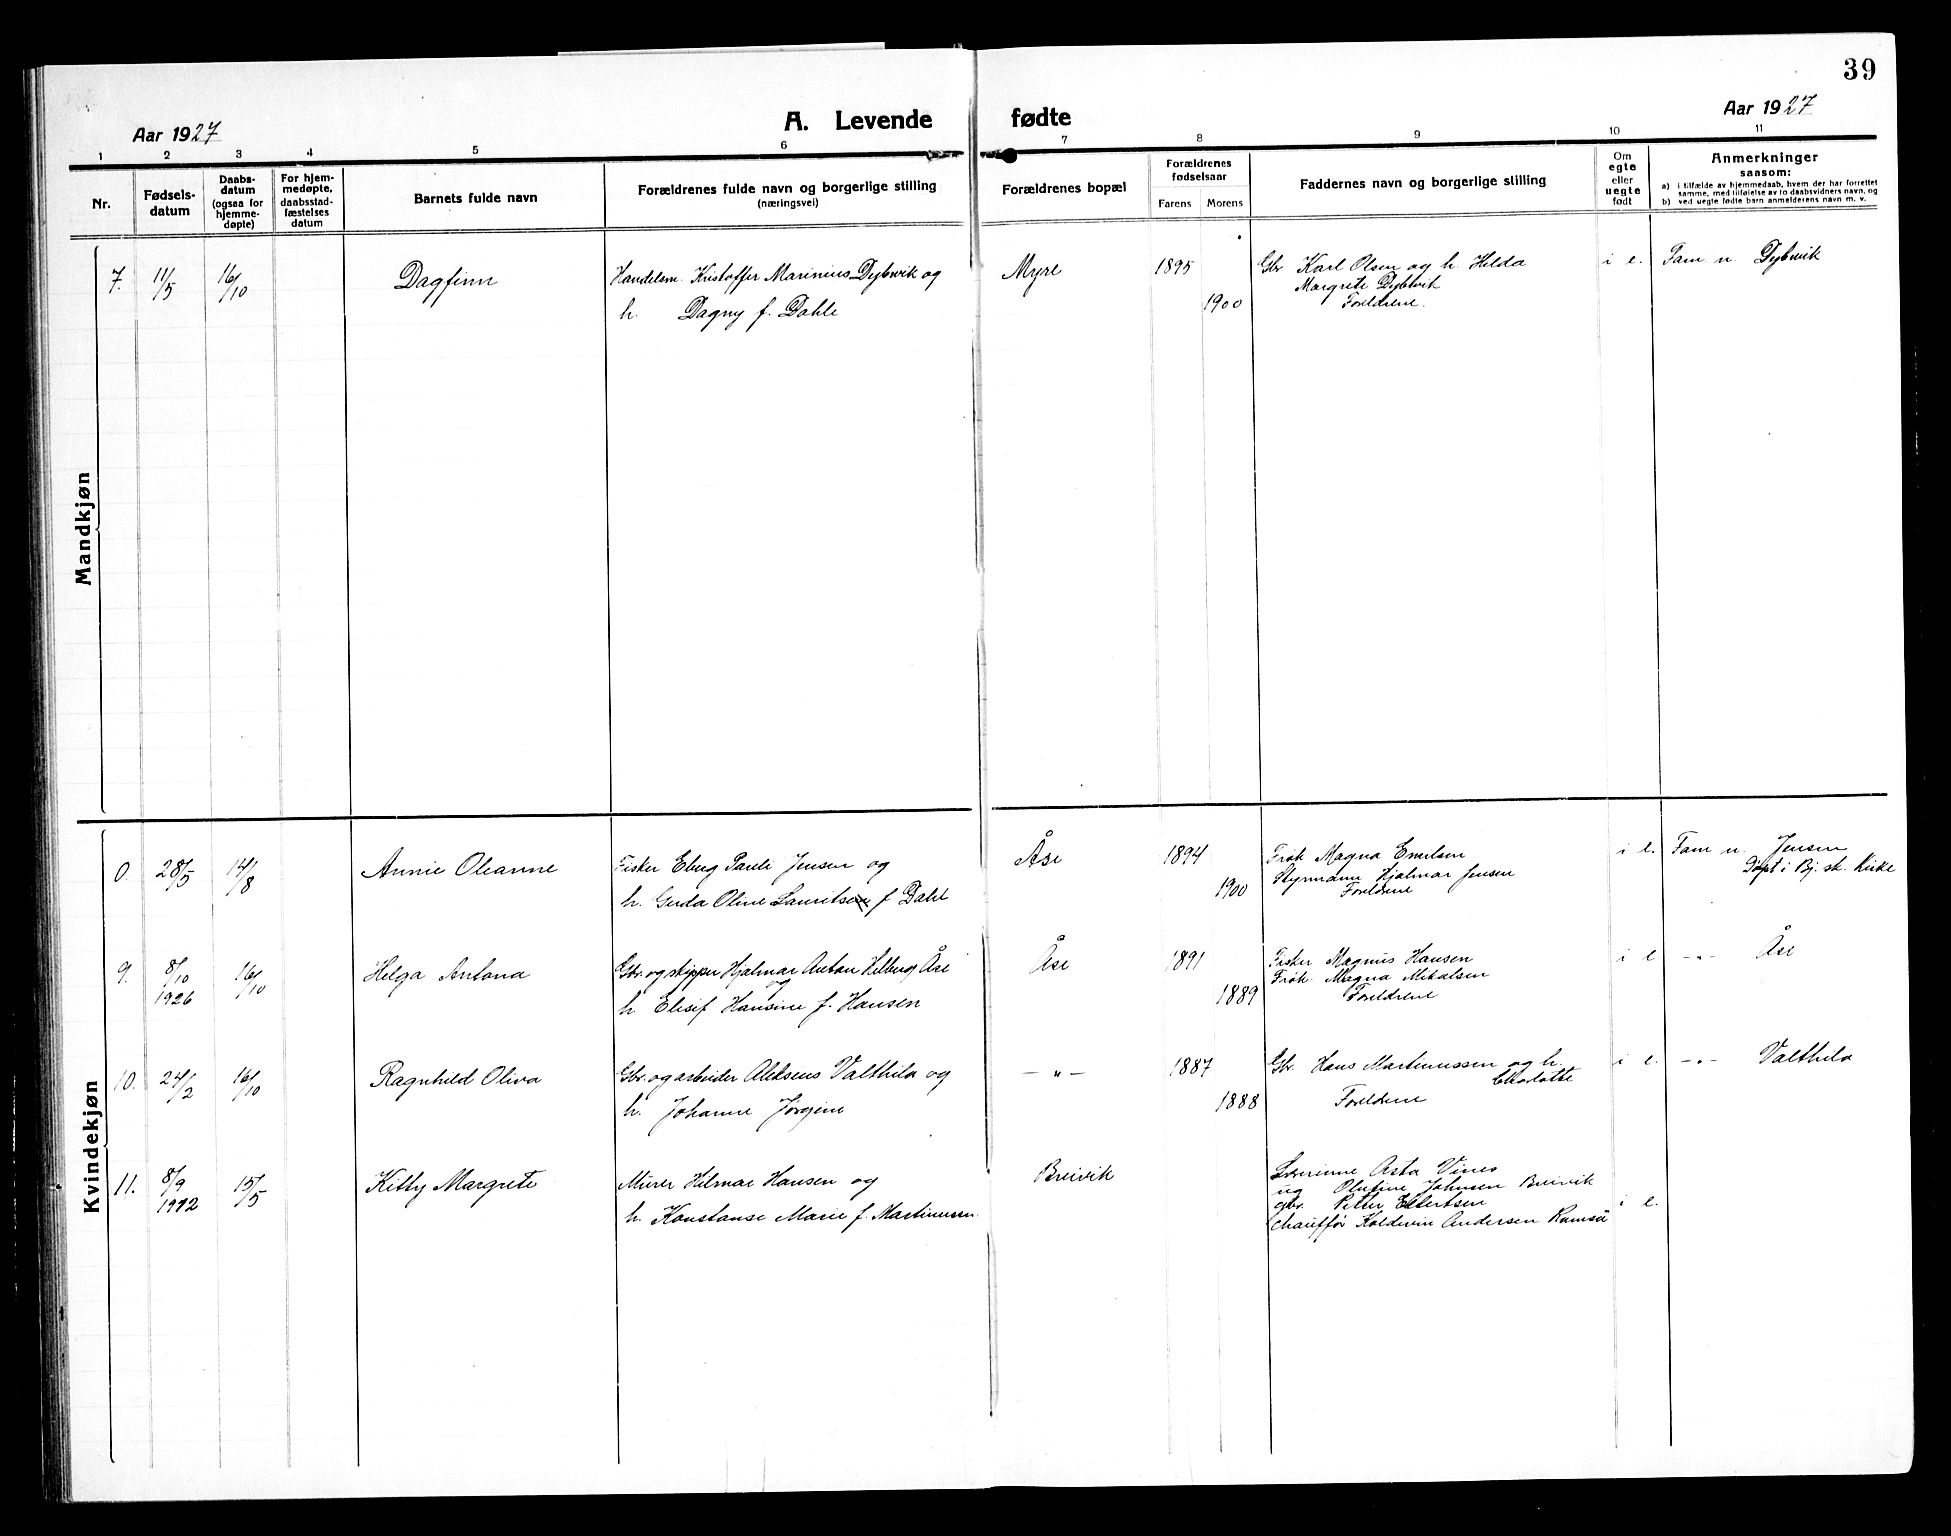 39
Aar 1927
A. Levende fødte
Aar 1927
1 2 3 4 5 6 7 8 9 10 11
Nr.
Fødsels-
datum
Daabs-
datum
(ogsaa for
hjemme-
døpte)
For hjem-
medøpte,
daabsstad-
fæstelses
datum
Barnets fulde navn
Forældrenes fulde navn og borgerlige stilling
(næringsvei)
Forældrenes bopæl
Forældrenes
fødselsaar
Farens Morens
Faddernes navn og borgerlige stilling
Om
egte
eller
uegte
født
Anmerkninger
saasom:
a) i tilfælde av hjemmedaab, hvem der har forrettet
samme, med tilføielse av to daabsvidners navn, og
b) ved uegte fødte barn anmelderens navn m. v.
Mandkjøn
7. 11/5 16/10 Dagfinn
Handelsm. Kristoffer Marinius Dybvik og
h. Dagny f. Dahle
Myre
1895
1900
Gbr Karl Olsen og h. Hilda
Margrete Dybvik
Foreldrene.
i e.
Fam n. Dybvik
Kvindekjøn
0. 28/5 14/8 Annie Oleanne
Fisker Eberg Pareli Jensen og
h. Gerda Oline Lauritsen f Dahl
Åse
1894
1900
Frøk Magna Emilsen
Styrmann Hjalmar Jensen
Foreldrene
i e.
Fam n. Jensen
Døpt i Bj. sk. Kirke
9. 8/10 1926 16/10 Helga Antona
Gbr. og skipper Hjalmar Anton Hilberg Åse
og
h Elisif Hansine f. Hansen
Åse
1891
1889
Fisker Magnus Hansen
Frøk. Magna Mikalsen
Foreldrene
i e
-"- Åse
10. 24/2 16/10 Ragnhild Oliva
Gbr. og arbeider Aleksens Valthila og
h. Johanne Jørgine
- " -
1887
1888
Gbr. Hans Martinussen og h.
Charlotte
Foreldrene
i e.
-"- Valthila
11. 8/9 1912 15/5 Kitty Margrete
Murer Hilmar Hansen og
h. Konstanse Marie f. Martinussen
Breivik
Lærerinne Asta Vines
ug Olufine Johnsen Breivik
gbr. Petter Ellertsen
chauffør Kolderin Andersen Ramså
i e.